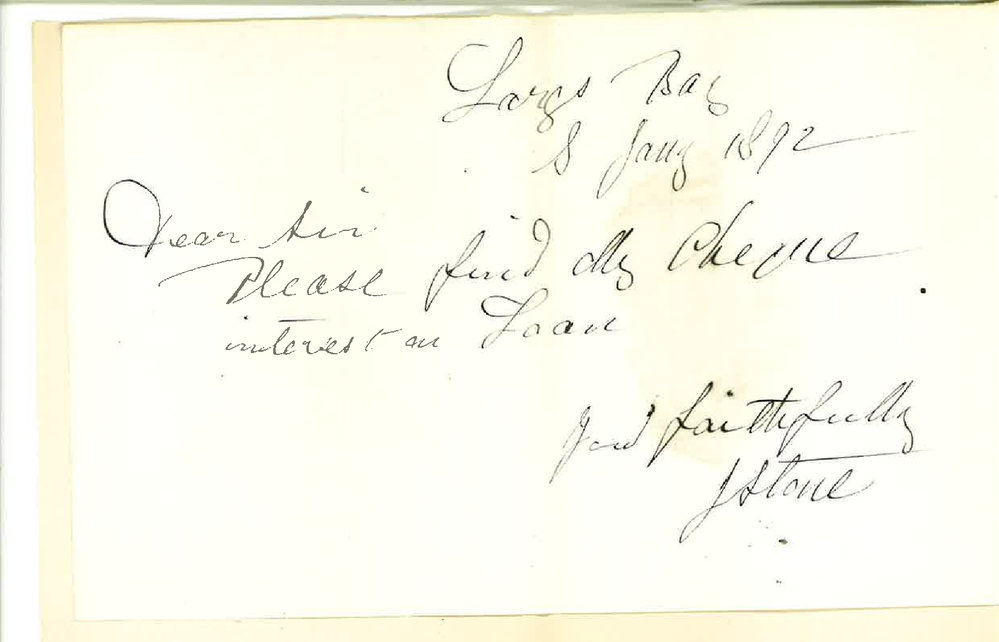 Largs Bay
8 Jany 1892
Dear Sir
Please find My Cheque
interest on Loan
faithfully
J Stone